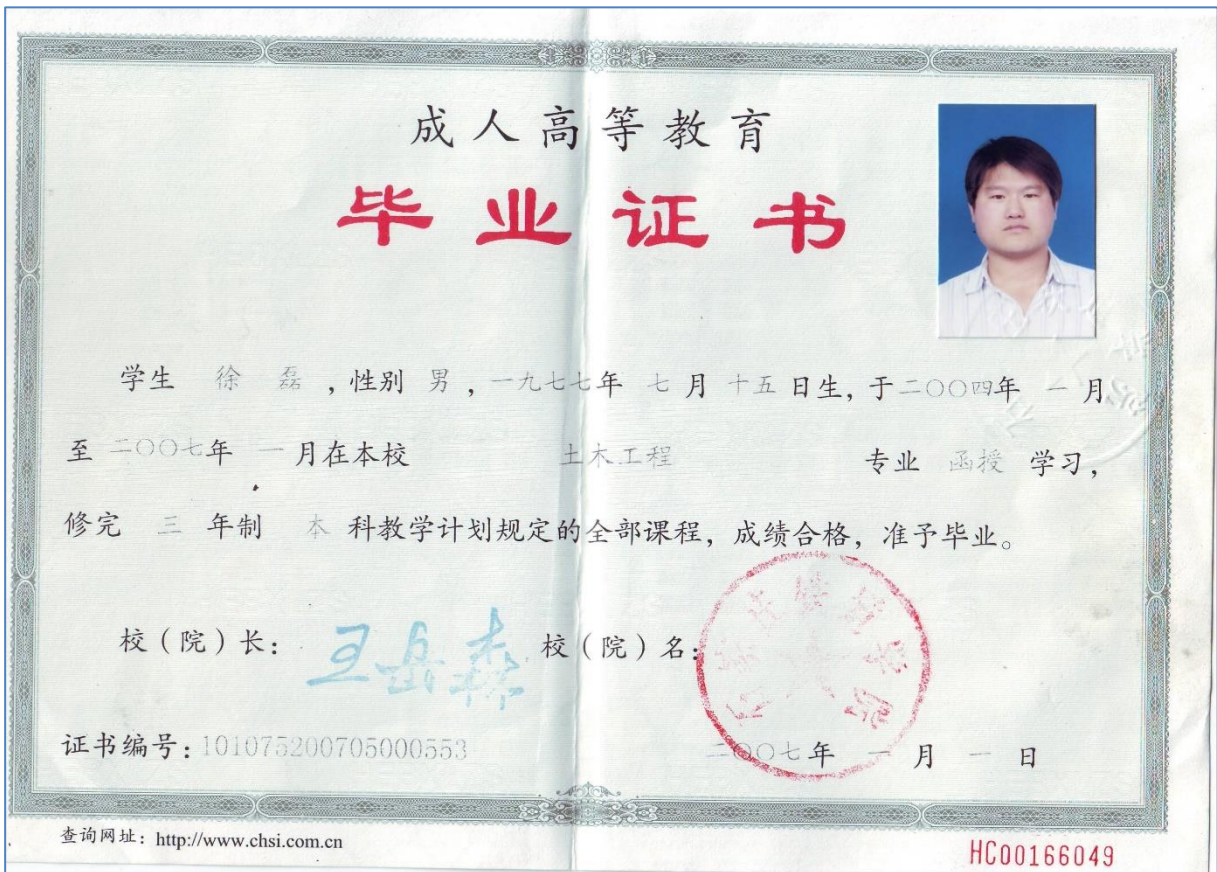 成人高等教育
毕业证书
学生 徐磊 ,性别 男 ,一九七七年 七 月 十五 日生, 于二〇〇四年 一 月
至 二〇〇七年 一 月在本校 土木工程 专业 函授 学习,
修完 三 年制 本 科教学计划规定的全部课程, 成绩合格, 准予毕业。
校(院)长: 王岳森 校(院)名:
石家庄铁道学院
证书编号: 101075200705000553 二〇〇七年 一 月 一 日
查询网址: http://www.chsi.com.cn
HC00166049